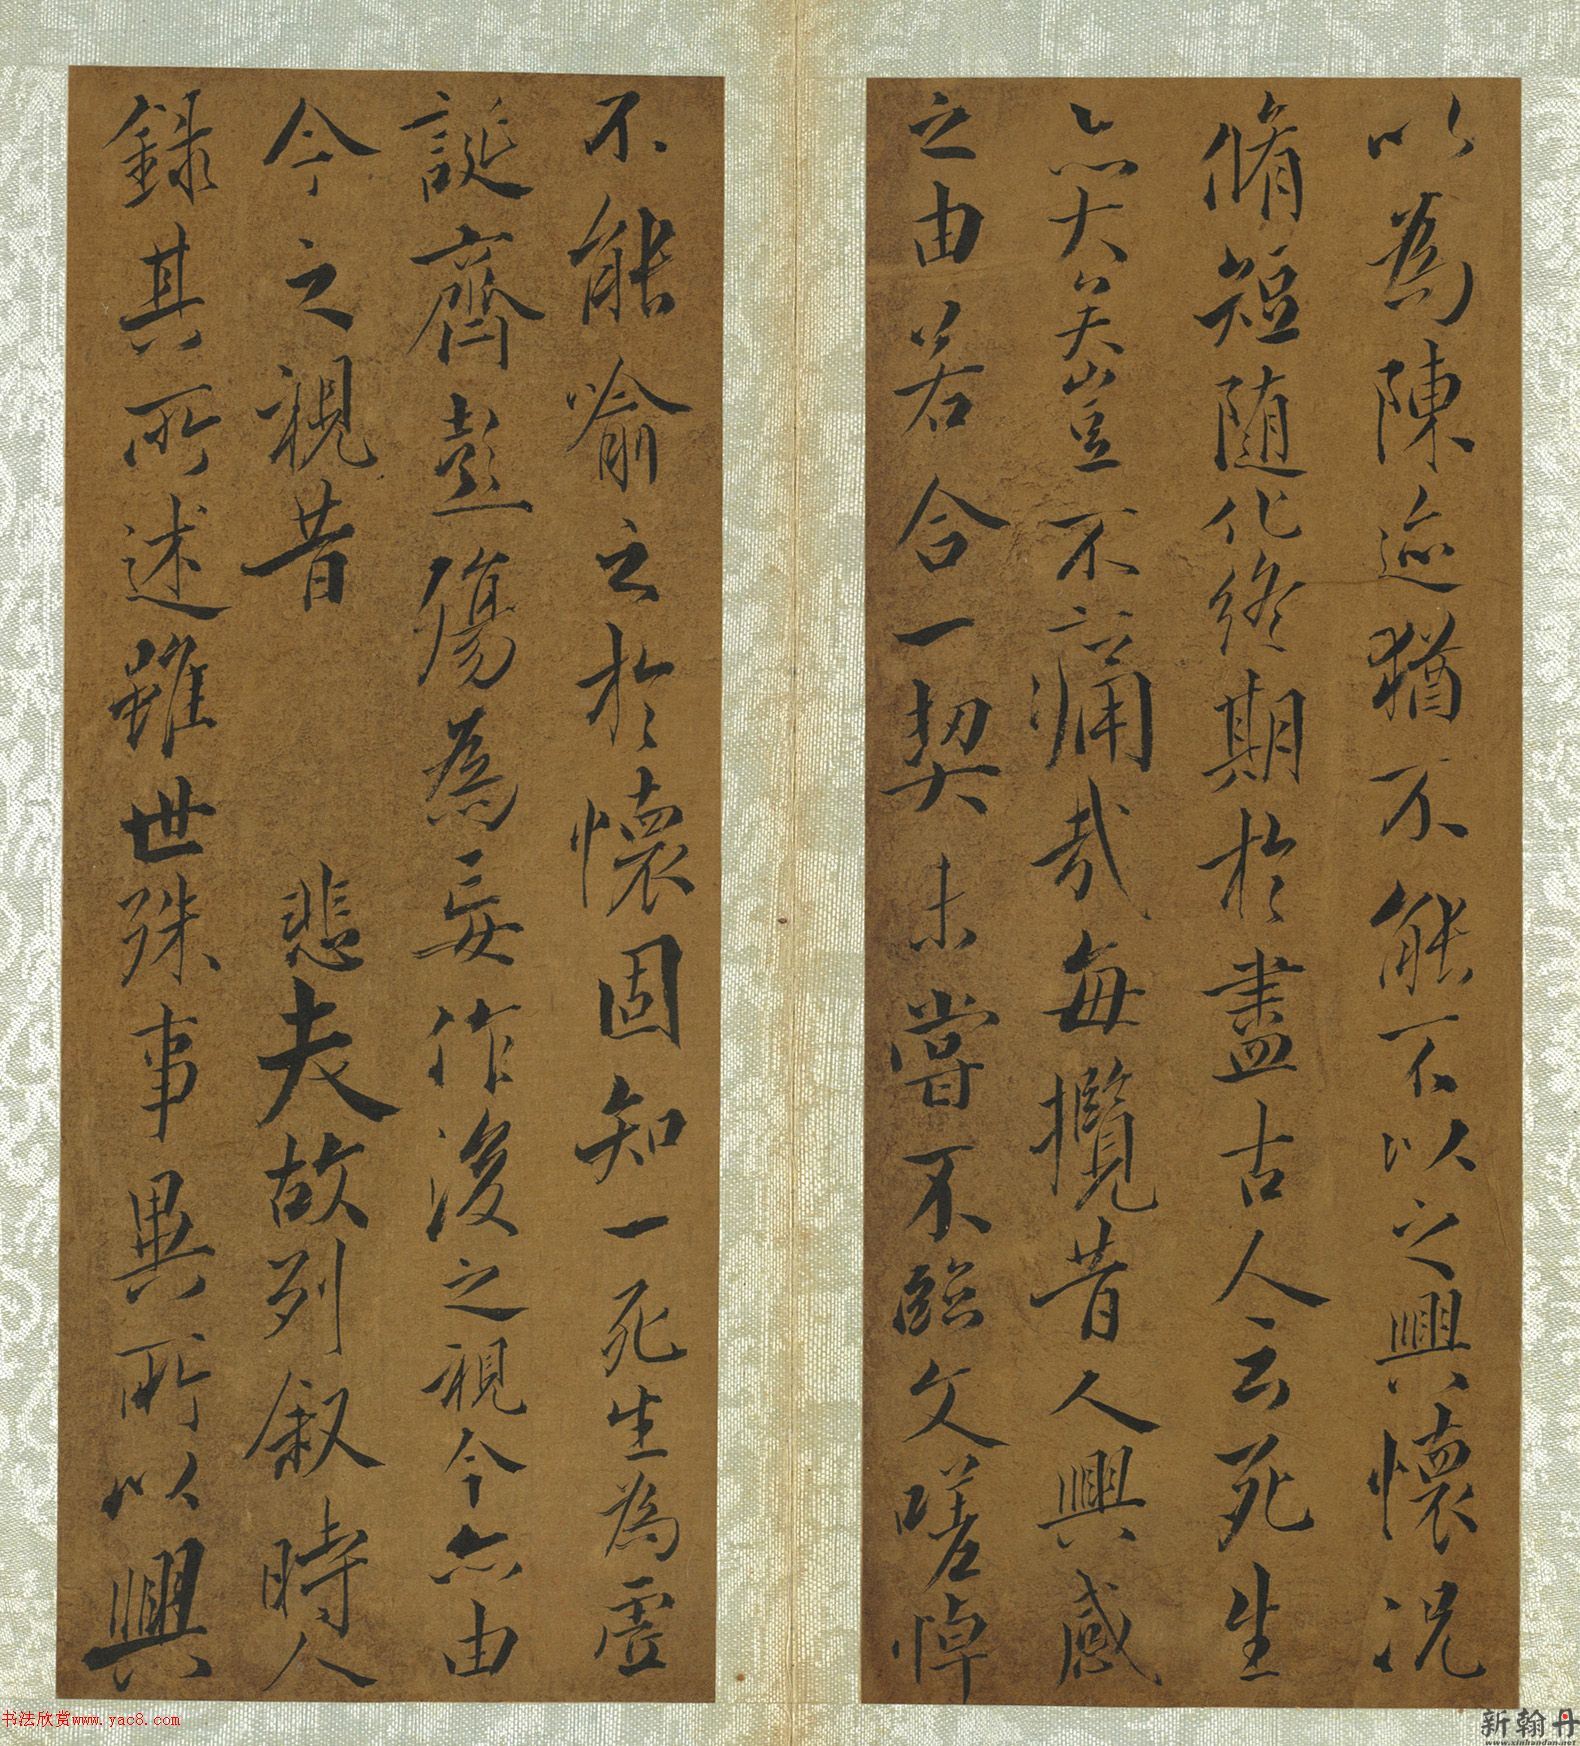 以為陳迹猶不能不以之興懷況
脩短隨化終期於盡古人云死生
亦大矣豈不痛哉每攬昔人興感
之由若合一契未嘗不臨文嗟悼
不能喻之於懷固知一死生為虛
誕齊彭殤為妄作後之視今亦由
今之視昔 悲夫故列叙時人
錄其所述雖世殊事異所以興
书法欣赏www.yac8.com
新翰丹
www.xinhandan.net